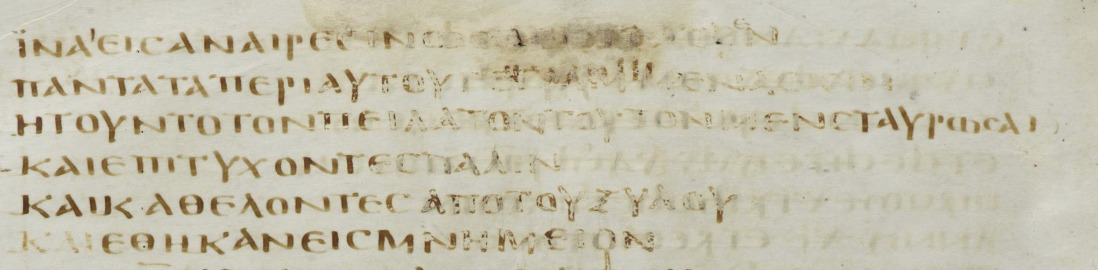 ΪΝΑ'ΕΙCΑΝΑΙΡΕCΙΝ
ΠΑΝΤΑΤΑΠΕΡΙΑΥΤΟΥΓΕΓΡΑΜΜΕΝΑ
ΗΤΟΥΝΤΟΤΟΝΠΕΙΛΑΤΟΝΤΟΥΤΟΝΜΕΝCΤΑΥΡΩCΑΙ
ΚΑΙΕΠΙΤΥΧΟΝΤΕCΠΑΛΙΝ
ΚΑΙΚΑΘΕΛΟΝΤΕCΑΠΟΤΟΥΞΥΛΟΥ
ΚΑΙΕΘΗΚΑΝΕΙCΜΝΗΜΕΙΟΝ